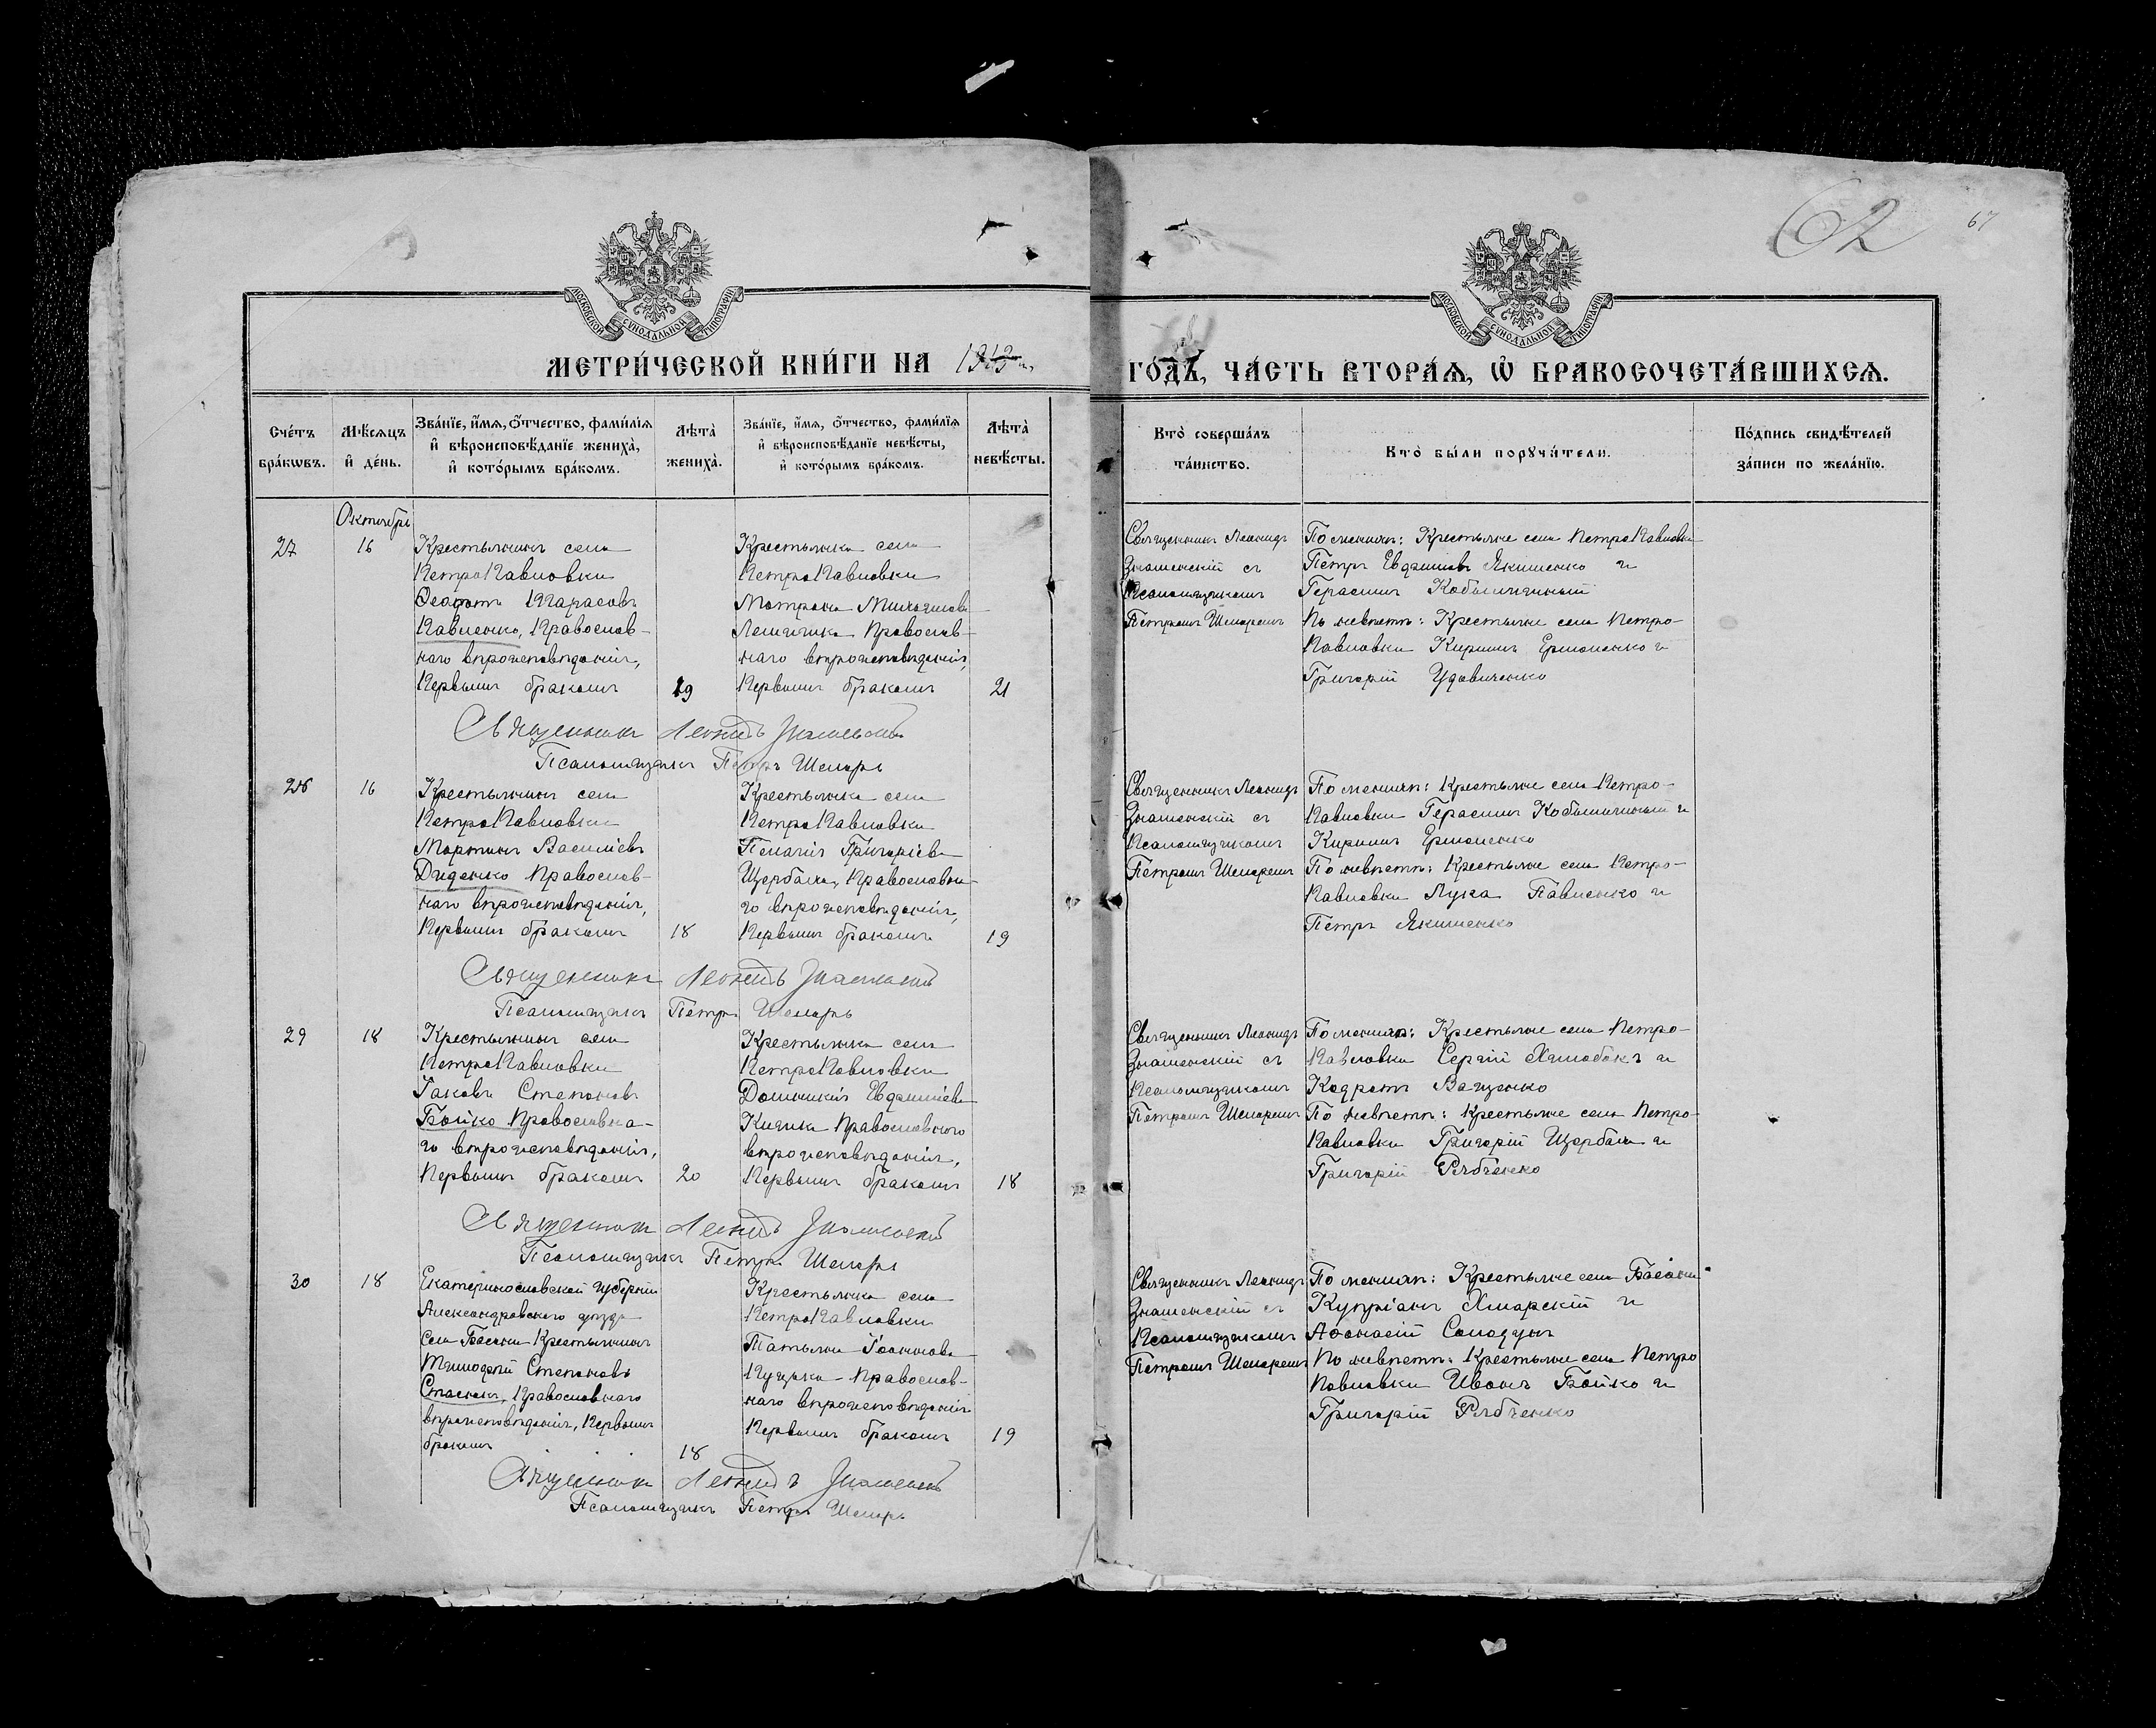 62
67
МОСКОВСКОЙ СѴНОДАЛЬНОЙ ТИПОГРАФІИ
МОСКОВСКОЙ СѴНОДАЛЬНОЙ ТИПОГРАФІИ
МЕТРИ́ЧЕСКОЙ КНИ́ГИ НА
ГО́ДЪ, ЧА́СТЬ ВТОРА́Ѧ, Ѡ҆ БРАКОСОЧЕТА́ВШИХСѦ.
Сче́тъ бра́кѡвъ.
Мѣ́сѧцъ и҆ де́нь.
Зва́нїе, и҆́мѧ, ѻ҆́тчество, фами́лїѧ
и҆ вѣроисповѣ́данїе жениха̀,
и҆ кото́рымъ бра́комъ.
Лѣ́та жениха̀.
Зва́нїе, и҆́мѧ, ѻ҆́тчество, фами́лїѧ
и҆ вѣроисповѣ́данїе невѣ́сты,
и҆ кото́рымъ бра́комъ.
Лѣ́та невѣ́сты.
Кто̀ соверша́лъ
та́инство.
Кто̀ бы́ли порꙋчи́тели.
По́дпись свидѣ́телей
за́писи по жела́нїю.
Октябрь
27
16
Крестьянинъ села
ПетроПавловки
Ѳеодотъ Тарасовъ
Павленко, Православ-
наго вѣроисповѣданія,
Первымъ бракомъ
19
Крестьянка села
ПетроПавловки
Матрона Михаилова
Православ-
наго вѣроисповѣданія,
Первымъ бракомъ
21
Священникъ Леонидъ
Знаменскій съ
Псаломщикомъ
Петромъ Шемаремъ
По женихѣ: Крестьяне села ПетроПавловки
Петръ Евдокимовъ Якименко и
Герасимъ
По невѣстѣ: Крестьяне села Петро-
Павловки Кириллъ Ермоленко и
Григорій Удовиченко
Священникъ Леонидъ Знаменскій
Псаломщикъ Петръ Шемарь
28
16
Крестьянинъ села
ПетроПавловки
Мартинъ Василіевъ
Диденко Православ-
наго вѣроисповѣданія,
Первымъ бракомъ
18
Крестьянка села
ПетроПавловки
Пелагія Григоріева
Щербака, Православна-
го вѣроисповѣданія,
Первымъ бракомъ
19
Священникъ Леонидъ
Знаменскій съ
Псаломщикомъ
Петромъ Шемаремъ
По женихѣ: Крестьяне села Петро-
Павловки Герасимъ и
Кириллъ Ермоленко
По невѣстѣ: Крестьяне села Петро-
Павловки Лука Павленко и
Петръ Якименко
Священникъ Леонидъ Знаменскій
Псаломщикъ Петръ Шемарь
29
18
Крестьянинъ села
ПетроПавловки
Іаковъ Степановъ
Бойко Православна-
го вѣроисповѣданія,
Первымъ бракомъ
20
Крестьянка села
ПетроПавловки
Домникія Евдокиміева
Православнаго
вѣроисповѣданія,
Первымъ бракомъ
18
Священникъ Леонидъ
Знаменскій съ
Псаломщикомъ
Петромъ Шемаремъ
По женихѣ: Крестьяне села Петро-
Павловки Сергій и
Кодратъ Ващенко
По невѣстѣ: Крестьяне села Петро-
Павловки Григорій Щербака и
Григорій Рябченко
Священникъ Леонидъ Знаменскій
Псаломщикъ Петръ Шемарь
30
18
Екатеринославской губерніи
Александровскаго уѣзда
села Басани Крестьянинъ
Тимоѳей Степановъ
Православнаго
вѣроисповѣданія, Первымъ
бракомъ
18
Крестьянка села
ПетроПавловки
Татьяна Іоаннова
Православ-
наго вѣроисповѣданія
Первымъ бракомъ
19
Священникъ Леонидъ
Знаменскій съ
Псаломщикомъ
Петромъ Шемаремъ
По женихѣ: Крестьяне села Басани
Купріанъ Хмарскій и
Аѳонасій Солодунъ
По невѣстѣ: Крестьяне села Петро
Павловки Иванъ Бойко и
Григорій Рябченко
Священникъ Леонидъ Знаменскій
Псаломщикъ Петръ Шемарь